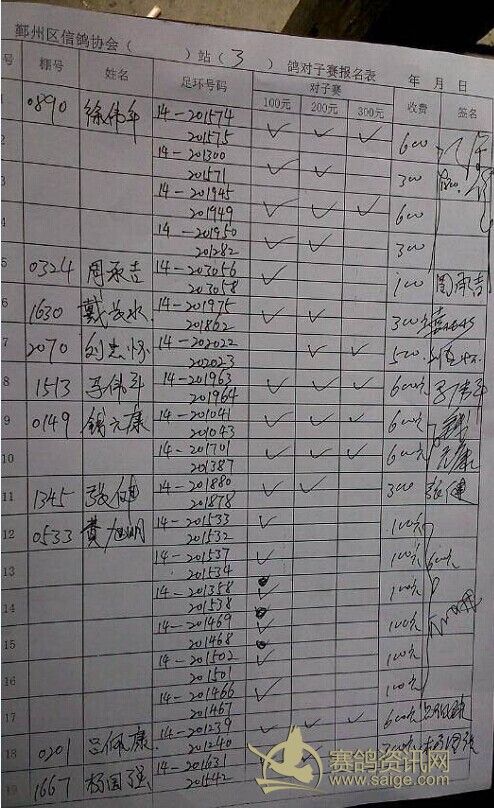 鄞州区信鸽协会（ ）站（ 3 ）鸽对子赛报名表 年 月 日
棚号 姓名 足环号码 对子赛 收费 签名
100元 200元 300元
1 0890 徐伟年 14-201574 ✓ ✓ ✓ 600
201575
2 14-201300 ✓ ✓ 300
201571
3 14-201945 ✓ ✓ ✓ 600
201949
4 14-201950 ✓ ✓ 300
201282
5 0324 周承吉 14-203056 ✓ 100 周承吉
203058
6 1630 戴 水 14-201975 ✓ ✓ 300元
201862
7 2070 刘志怀 14-202022 ✓ ✓ 500
202023
8 1513 李伟年 14-201963 ✓ ✓ ✓ 600元 李伟年
201964
9 0149 钱元康 14-201041 ✓ ✓ ✓ 600元
201043
10 14-201701 ✓ ✓ ✓ 600元
201387
11 1345 张健 14-201880 ✓ ✓ 300 张健
201878
12 0533 黄旭明 14-201533 ✓ 100元
201532
13 14-201537 ✓ 100元 600元
201534
14 14-201358 100元
201538
15 14-201469 ✓ 100元
201468
16 14-201502 ✓ 100元
201501
17 14-201466 ✓ 100元
201467
18 0201 吕佩康 14-201239 ✓ ✓ ✓ 600元
201240
19 1667 杨国强 14-201631 杨国强
201542
赛鸽资讯网
www.saige.com